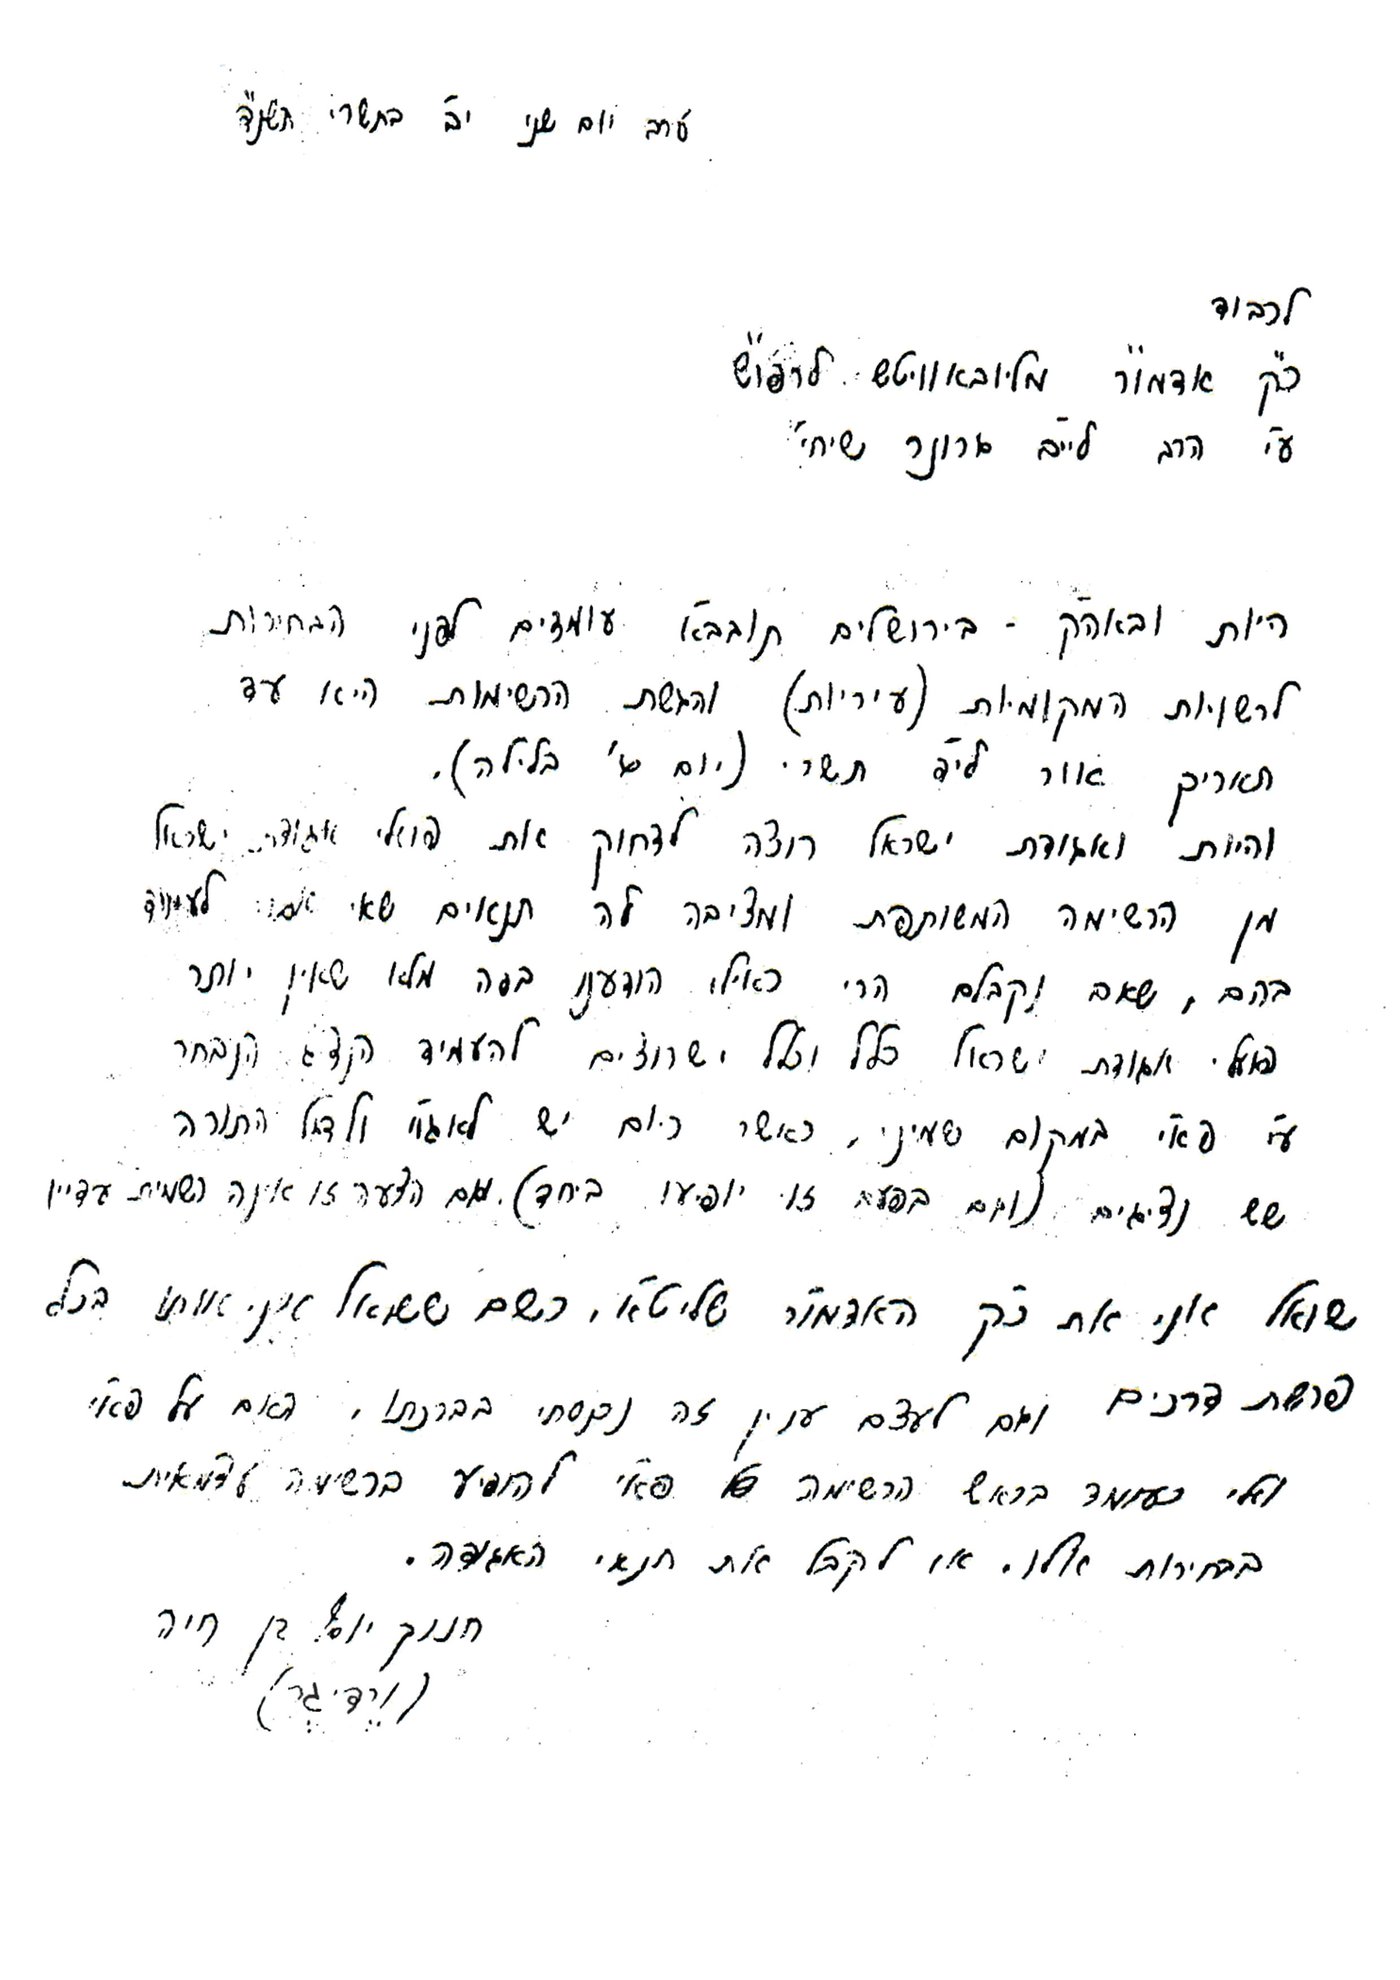 ערב יום שני י"ב בתשרי תשנ"ד
לכבוד
כ"ק אדמו"ר מליובאוויטש לרפו"ש
ע"י הרב לייב גרונר שיחי'
היות ובאה"ק - בירושלים תובב"א עומדים לפני הבחירות
לרשויות המקומיות (עיריות) והגשת הרשימות היא עד
תאריך אור לי"ד תשרי (יום ג' בלילה).
והיות ואגודת ישראל רוצה לדחוק את פועלי אגודת ישראל
מן הרשימה המשותפת ומציבה לה תנאים שאי אפשר לעמוד
בהם, שאם נקבלם הרי כאילו הודענו בפה מלא שאין יותר
פועלי אגודת ישראל כלל וכלל שרוצים להעמיד הנציג הנבחר
ע"י פא"י במקום שמיני, כאשר כיום יש לאגו"י ולדגל התורה
שש נציגים (וגם בפעם זו יופיעו ביחד). וגם הצעה זו אינה רשמית עדיין
שואל אני את כ"ק האדמו"ר שליט"א, כשם ששואל אני אותו בכל
פרשת דרכים וגם לעצם ענין זה נכנסתי בברכתו, האם על פא"י
ואלי כעומד בראש הרשימה של פא"י להופיע ברשימה עצמאית
בבחירות אלו. או לקבל את תנאי האגודה.
חנוך יוסף בן חיה
(ורדיגר)